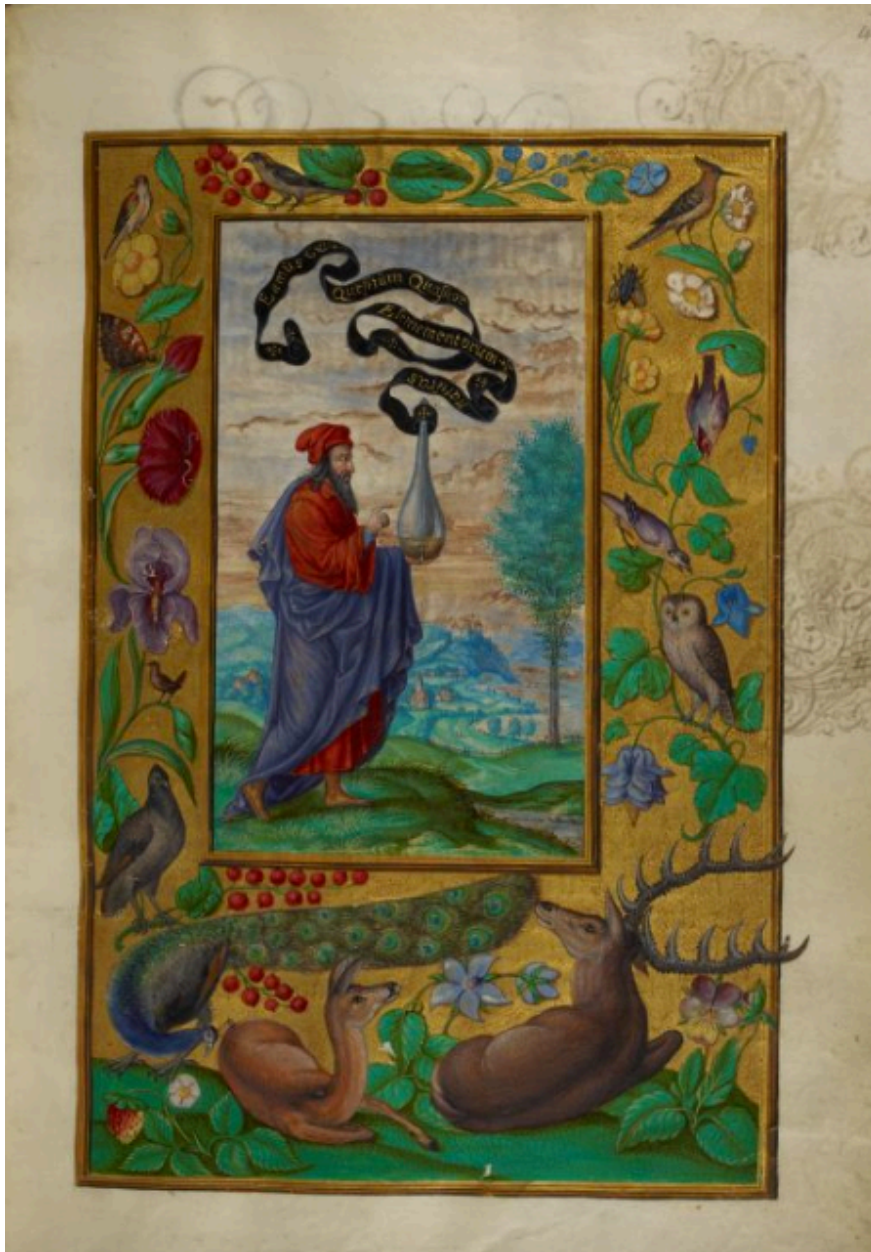 Eamus
Quesitum Quatuor
Elementorum
Naturas